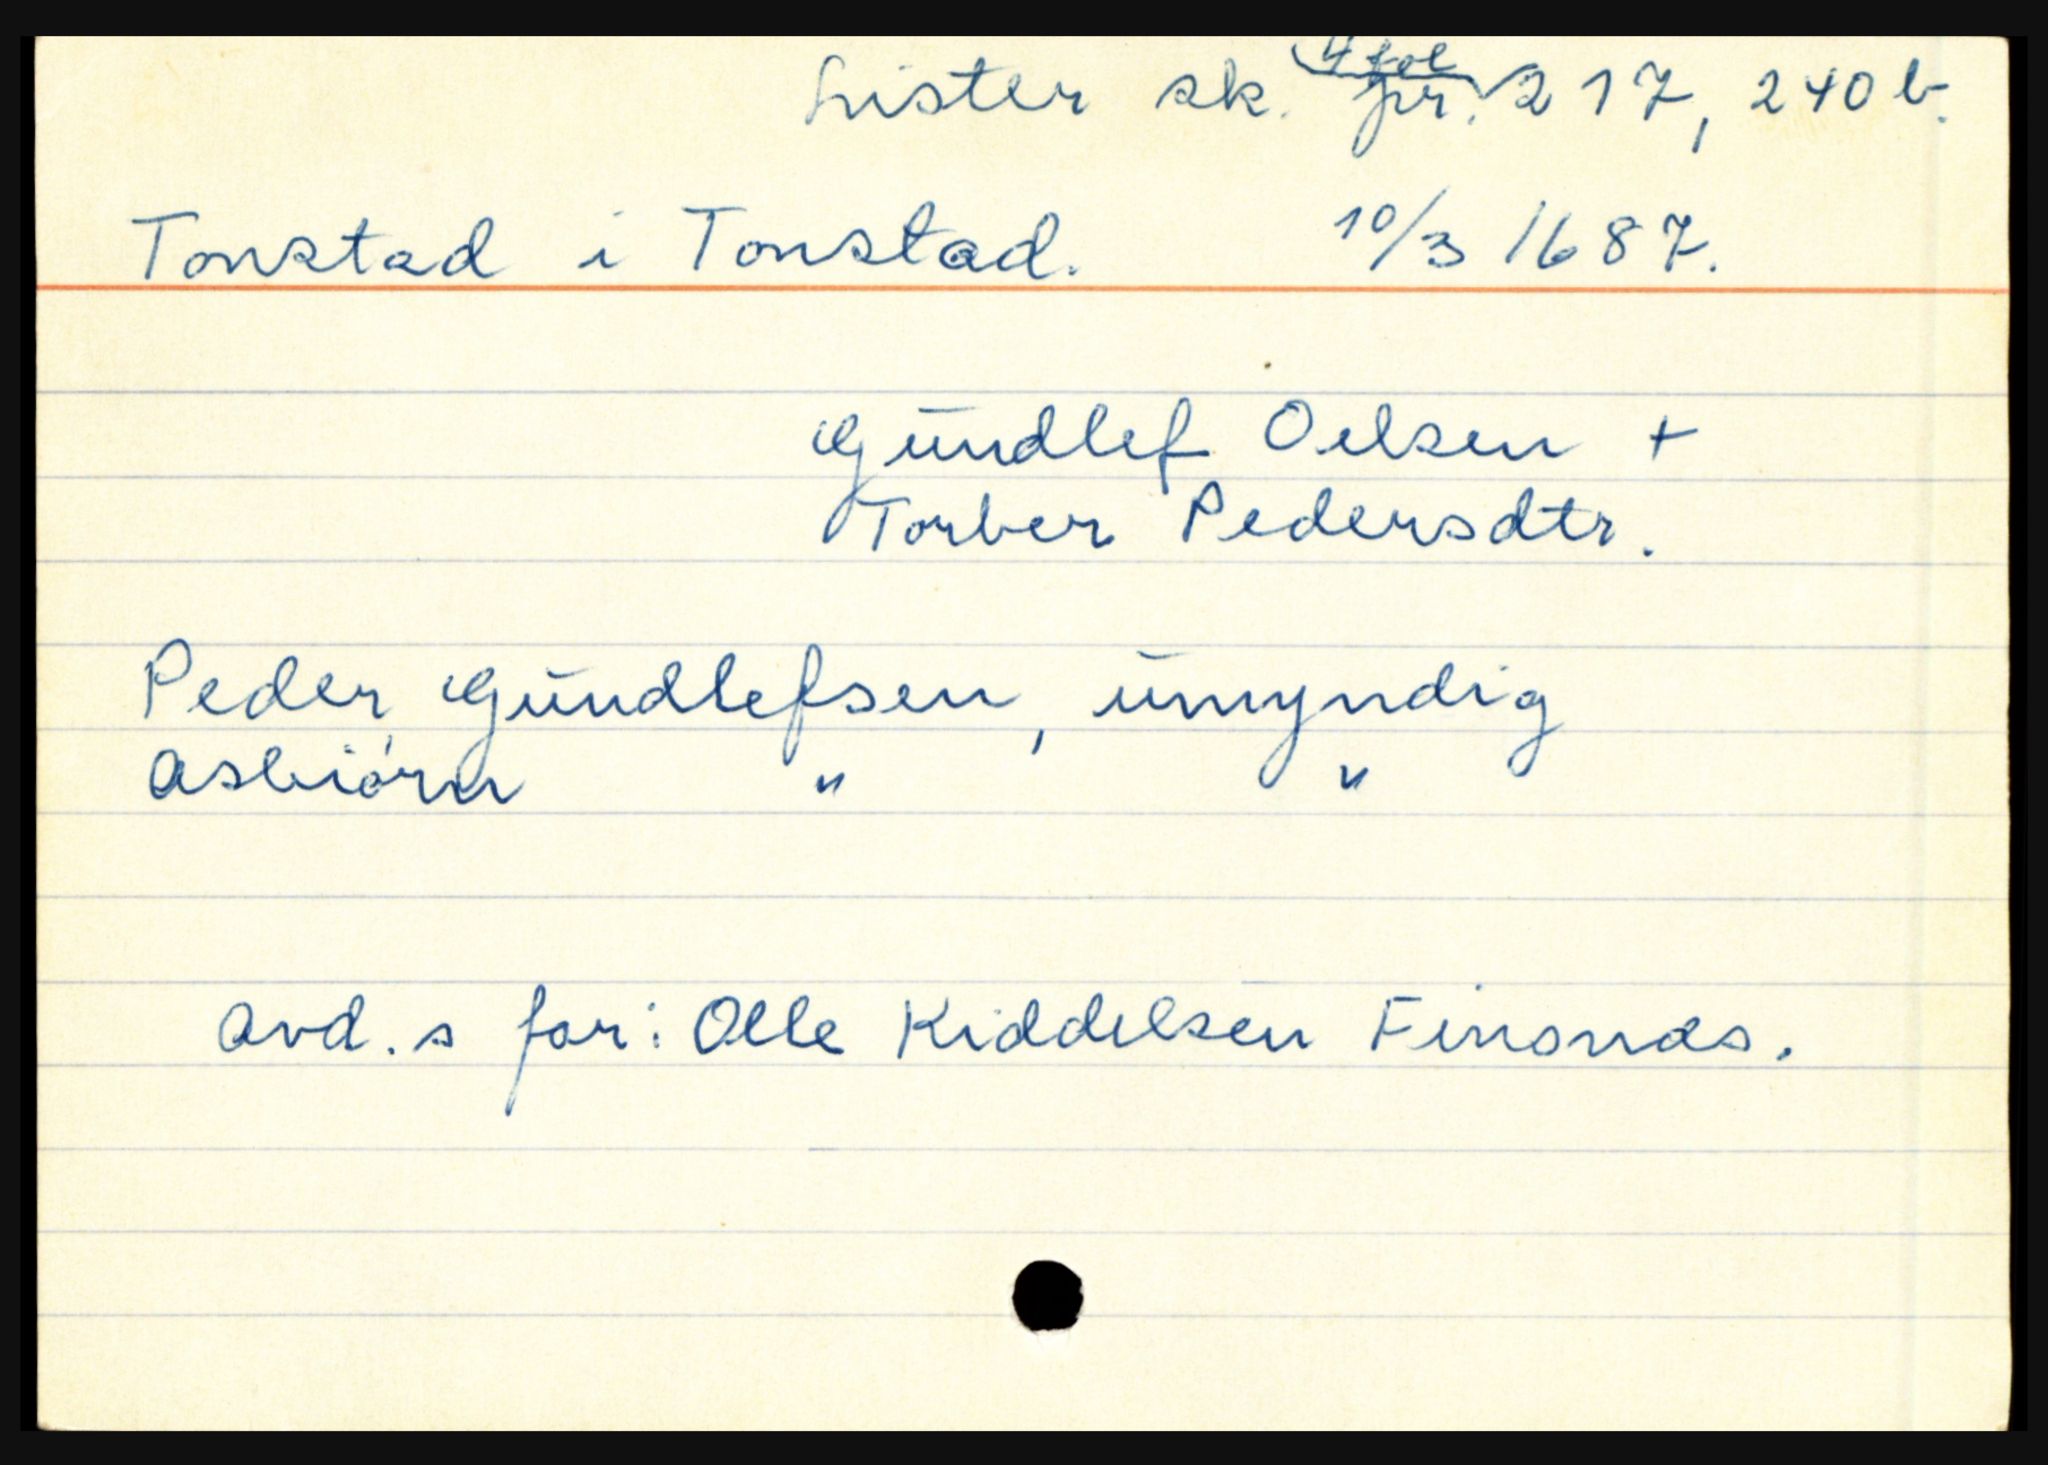 Lister sk. pr. 4 fol 217, 240 b.
Tonstad i Tonstad. 10/3 1687.
Gundlef Oelsen +
Torber Pedersdtr.
Peder Gundlefsen, umyndig
Asbiørn " "
Avd. s far: Olle Kiddelsen Finsnæs.